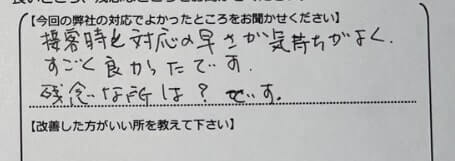 【今回の弊社の対応でよかったところをお聞かせください】
接客時と対応の早さが気持ちがよく、
すごく良かったです。
残念な所は?です。
【改善した方がいい所を教えて下さい】